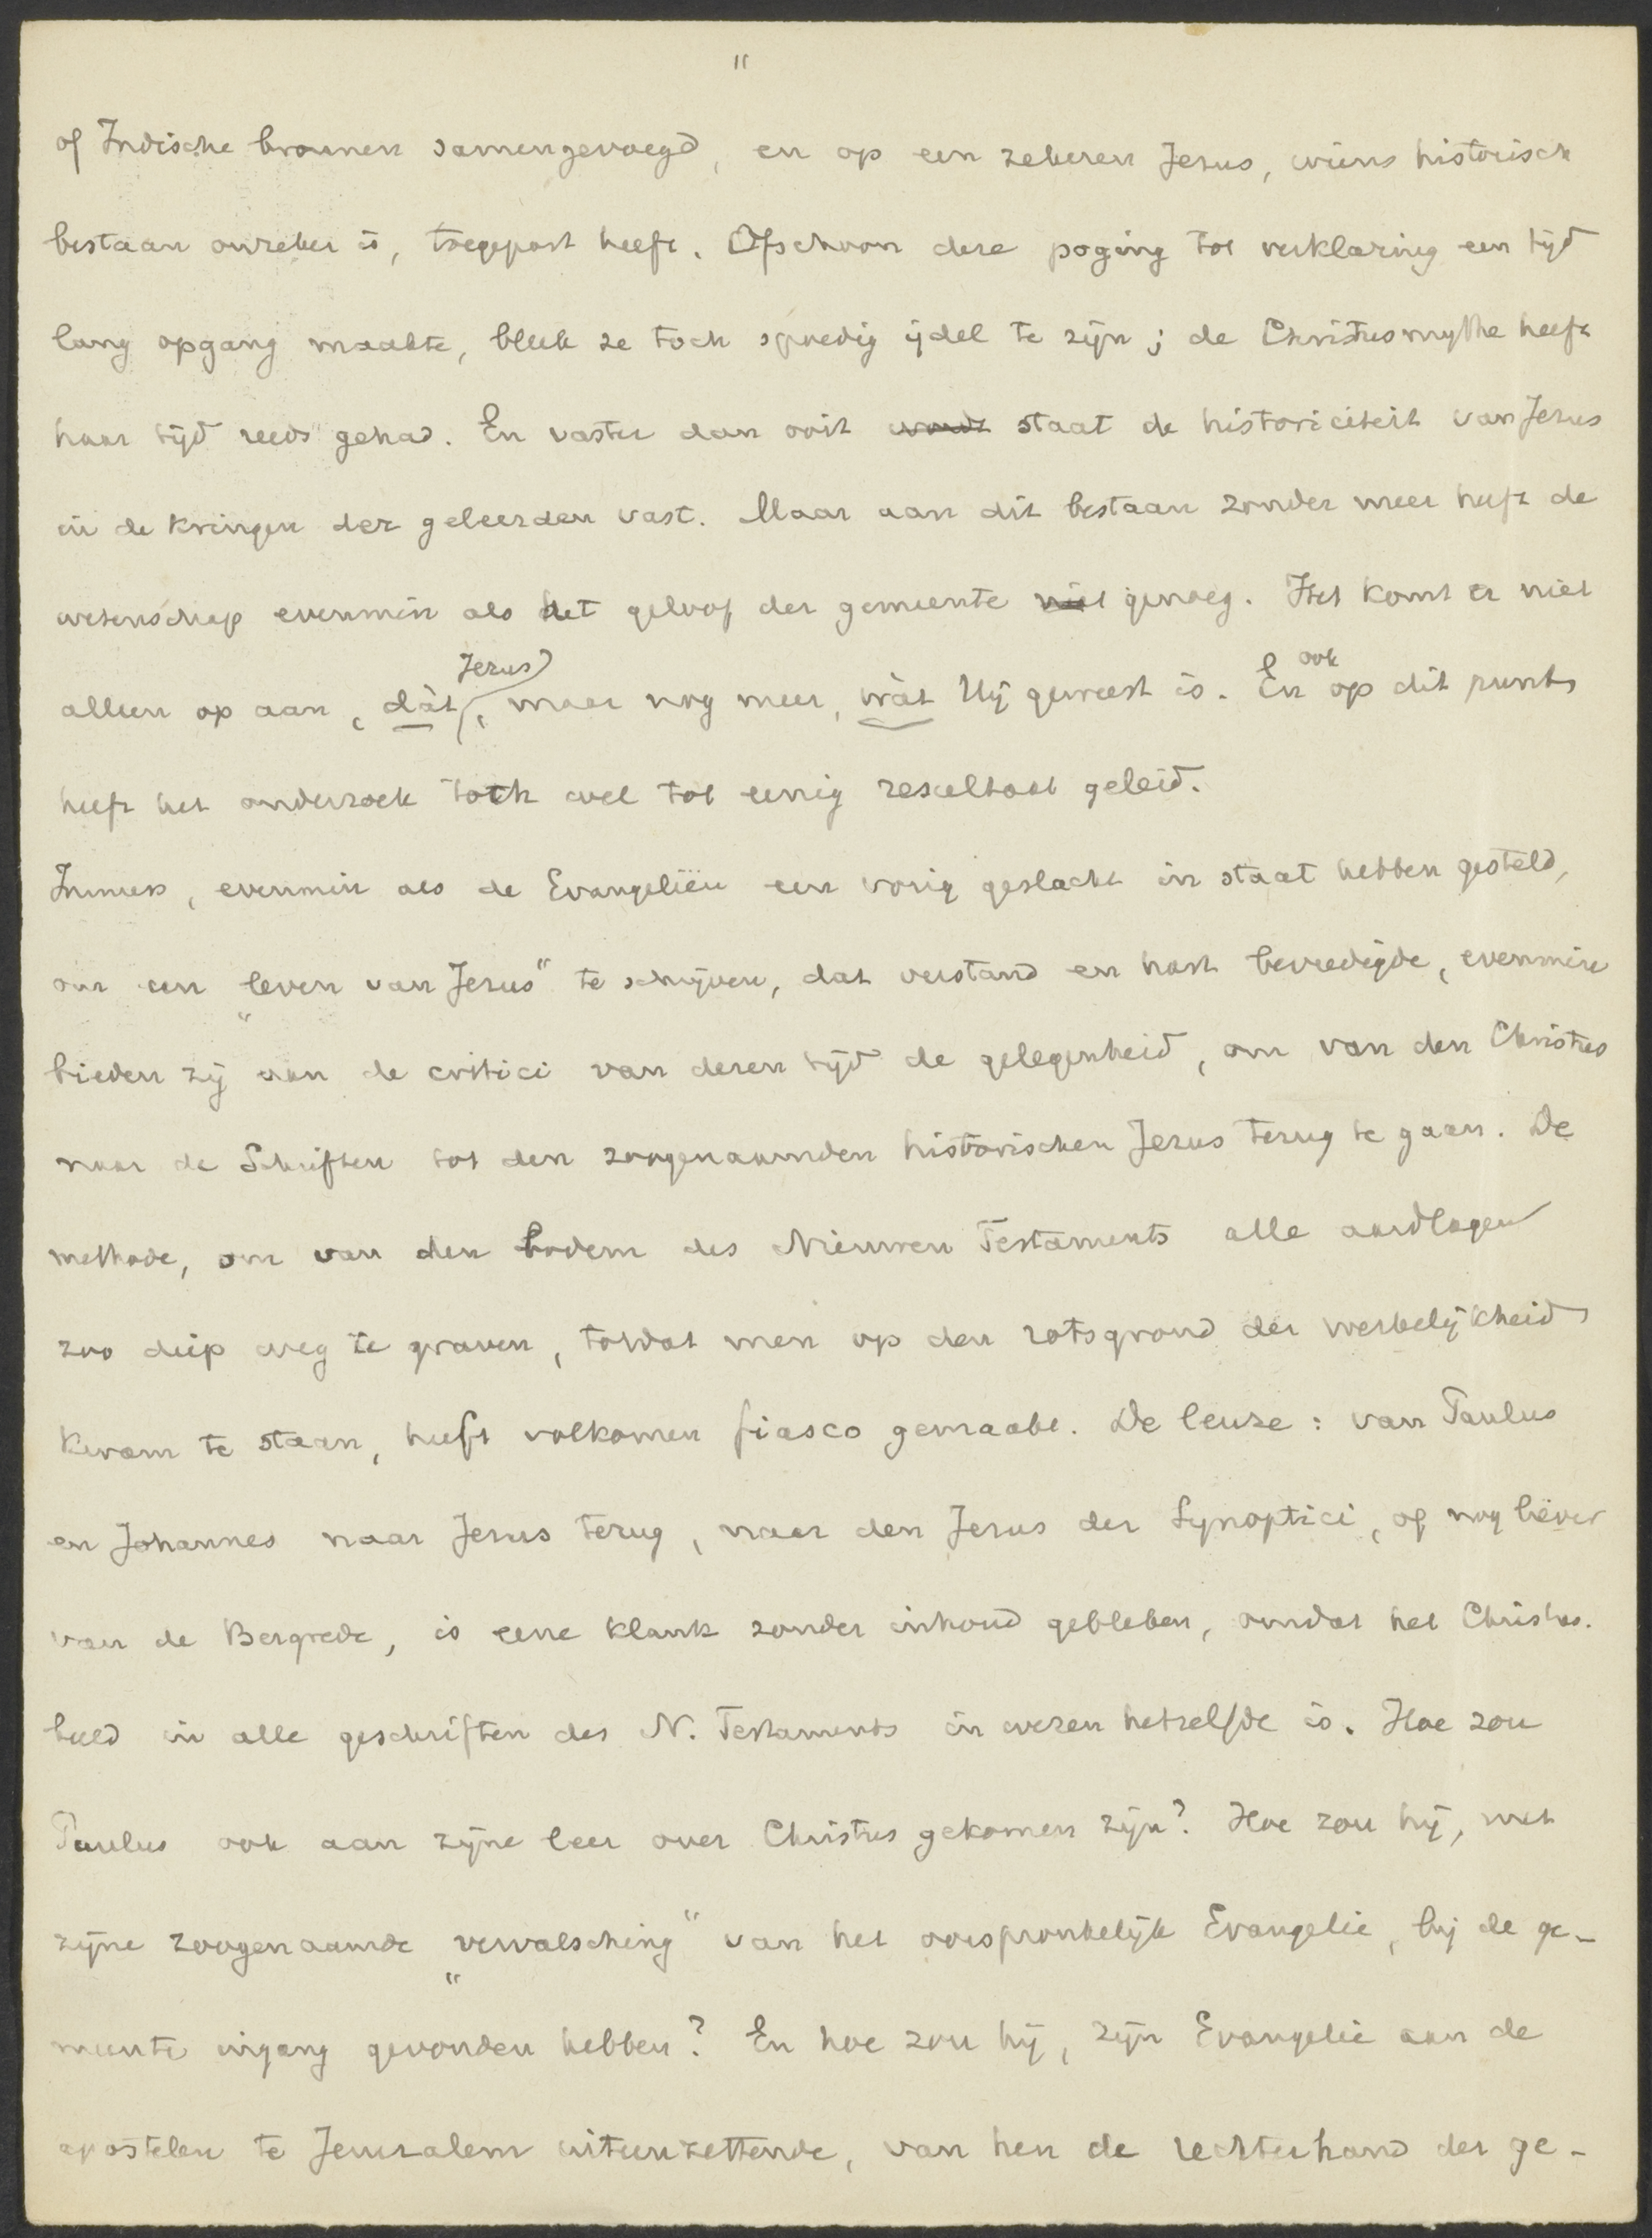 11
of Indische bronnen samengevoegd, en op een zekeren Jezus, wiens historisch
bestaan onzeker is, toegepast heeft. Ofschoon deze poging tot verklaring een tijd
lang opgang maakte, bleek ze toch spoedig ijdel te zijn; de Christusmythe heeft
haar tijd reeds gehad. En vaster dan ooit wordt staat de historiciteit van Jezus
in de kringen der geleerden vast. Maar aan dit bestaan zonder meer heeft de
wetenschap evenmin als het geloof der gemeente niet genoeg. Het komt er niet
alleen op aan, dàt Jezus, maar nog meer, wàt Hij geweest is. En ook op dit punt
heeft het onderzoek toch wel tot eenig resultaat geleid.
Immers, evenmin als de Evangeliën een vorig geslacht in staat hebben gesteld,
om een „leven van Jezus" te schrijven, dat verstand en hart bevredigde, evenmin
bieden zij aan de critici van dezen tijd de gelegenheid, om van den Christus
naar de Schriften tot den zoogenaamden historischen Jezus terug te gaan. De
methode, om van den bodem des Nieuwen Testaments alle aardlagen
zoo diep weg te graven, totdat men op den rotsgrond der werkelijkheid
kwam te staan, heeft volkomen fiasco gemaakt. De leuze: van Paulus
en Johannes naar Jezus terug, naar den Jezus der Synoptici, of nog liever
van de Bergrede, is eene klank zonder inhoud gebleken, omdat het Christus-
beeld in alle geschriften des N. Testaments in wezen hetzelfde is. Hoe zou
Paulus ook aan zijne leer over Christus gekomen zijn? Hoe zou hij, met
zijne zoogenaamde „vervalsching" van het oorspronkelijk Evangelie, bij de ge-
meente ingang gevonden hebben? En hoe zou hij, zijn Evangelie aan de
apostelen te Jeruzalem uiteenzettende, van hen de rechterhand der ge-